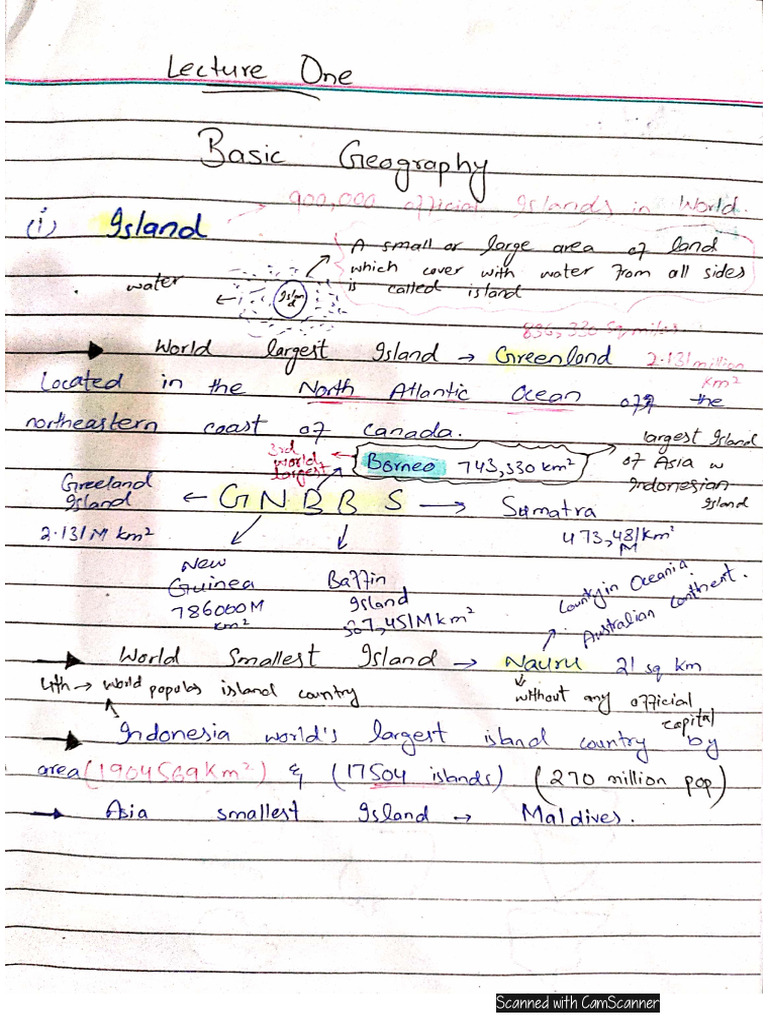 Lecture One
Basic Geography
900,000 official Islands in World.
(i) Island
A small or large area of land
which cover with water from all sides
is called island
water
Island
836,330 sq, miles
World largest Island → Greenland 2.131 million
km²
Located in the North Atlantic Ocean off the
northeastern coast of Canada.
3rd
world
largest
Borneo 743,330 km²
largest Island
of Asia w
Indonesian
Island
Greeland
Island
← G N B B S → Sumatra
2.131 M km²
473,481 km²
M
New
Guinea
786000 M
km²
Baffin
Island
507,451 M km²
Country in Oceania
Australian continent.
World Smallest Island → Nauru 21 sq km
4th → world populas island country
without any official
capital
Indonesia world's largest island country by
area (1904569 Km²) & (17504 islands) (270 million pop)
Asia smallest Island → Maldives.
Scanned with CamScanner